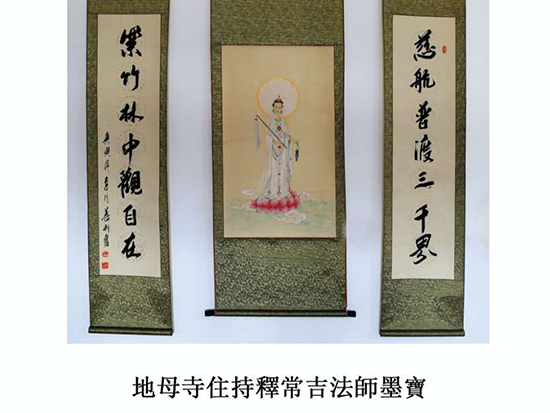 慈航普渡三千界
紫竹林中觀自在
地母寺住持釋常吉法師墨寶